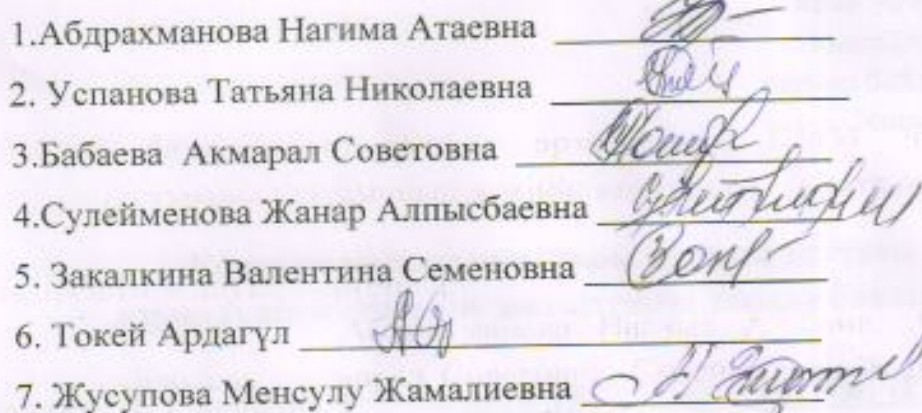 1.Абдрахманова Нагима Атаевна
2. Успанова Татьяна Николаевна
3.Бабаева Акмарал Советовна
4.Сулейменова Жанар Алпысбаевна
5. Закалкина Валентина Семеновна
6. Токей Ардагүл
7. Жусупова Менсулу Жамалиевна